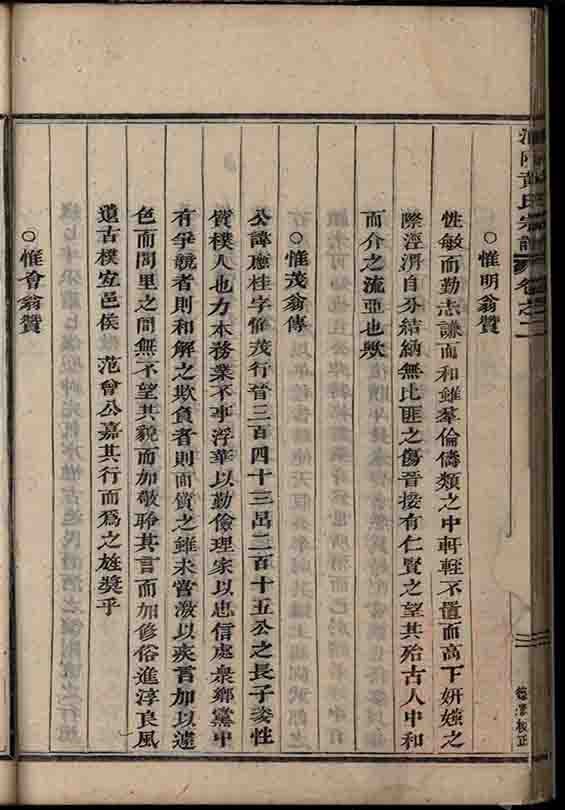 黃氏宗譜 卷之二
○惟明翁贊
性敏而勤志謙而和雖羣倫儔類之中軒輊不置而高下妍媸之
際涇渭自分結納無比匪之傷晉接有仁賢之望其殆古人中和
而介之流亞也歟
○惟茂翁傳
公諱應桂字惟茂行晉三百四十三啚二百十五公之長子姿性
質樸人也力本務業不事浮華以勤儉理家以忠信處衆鄉黨中
有爭競者則和解之欺負者則面質之雖未嘗激以疾言加以遽
色而閭里之間無不望其貌而加敬聆其言而加修俗進淳良風
還古樸宜邑侯 范會公嘉其行而爲之旌獎乎
○惟會翁贊
校正